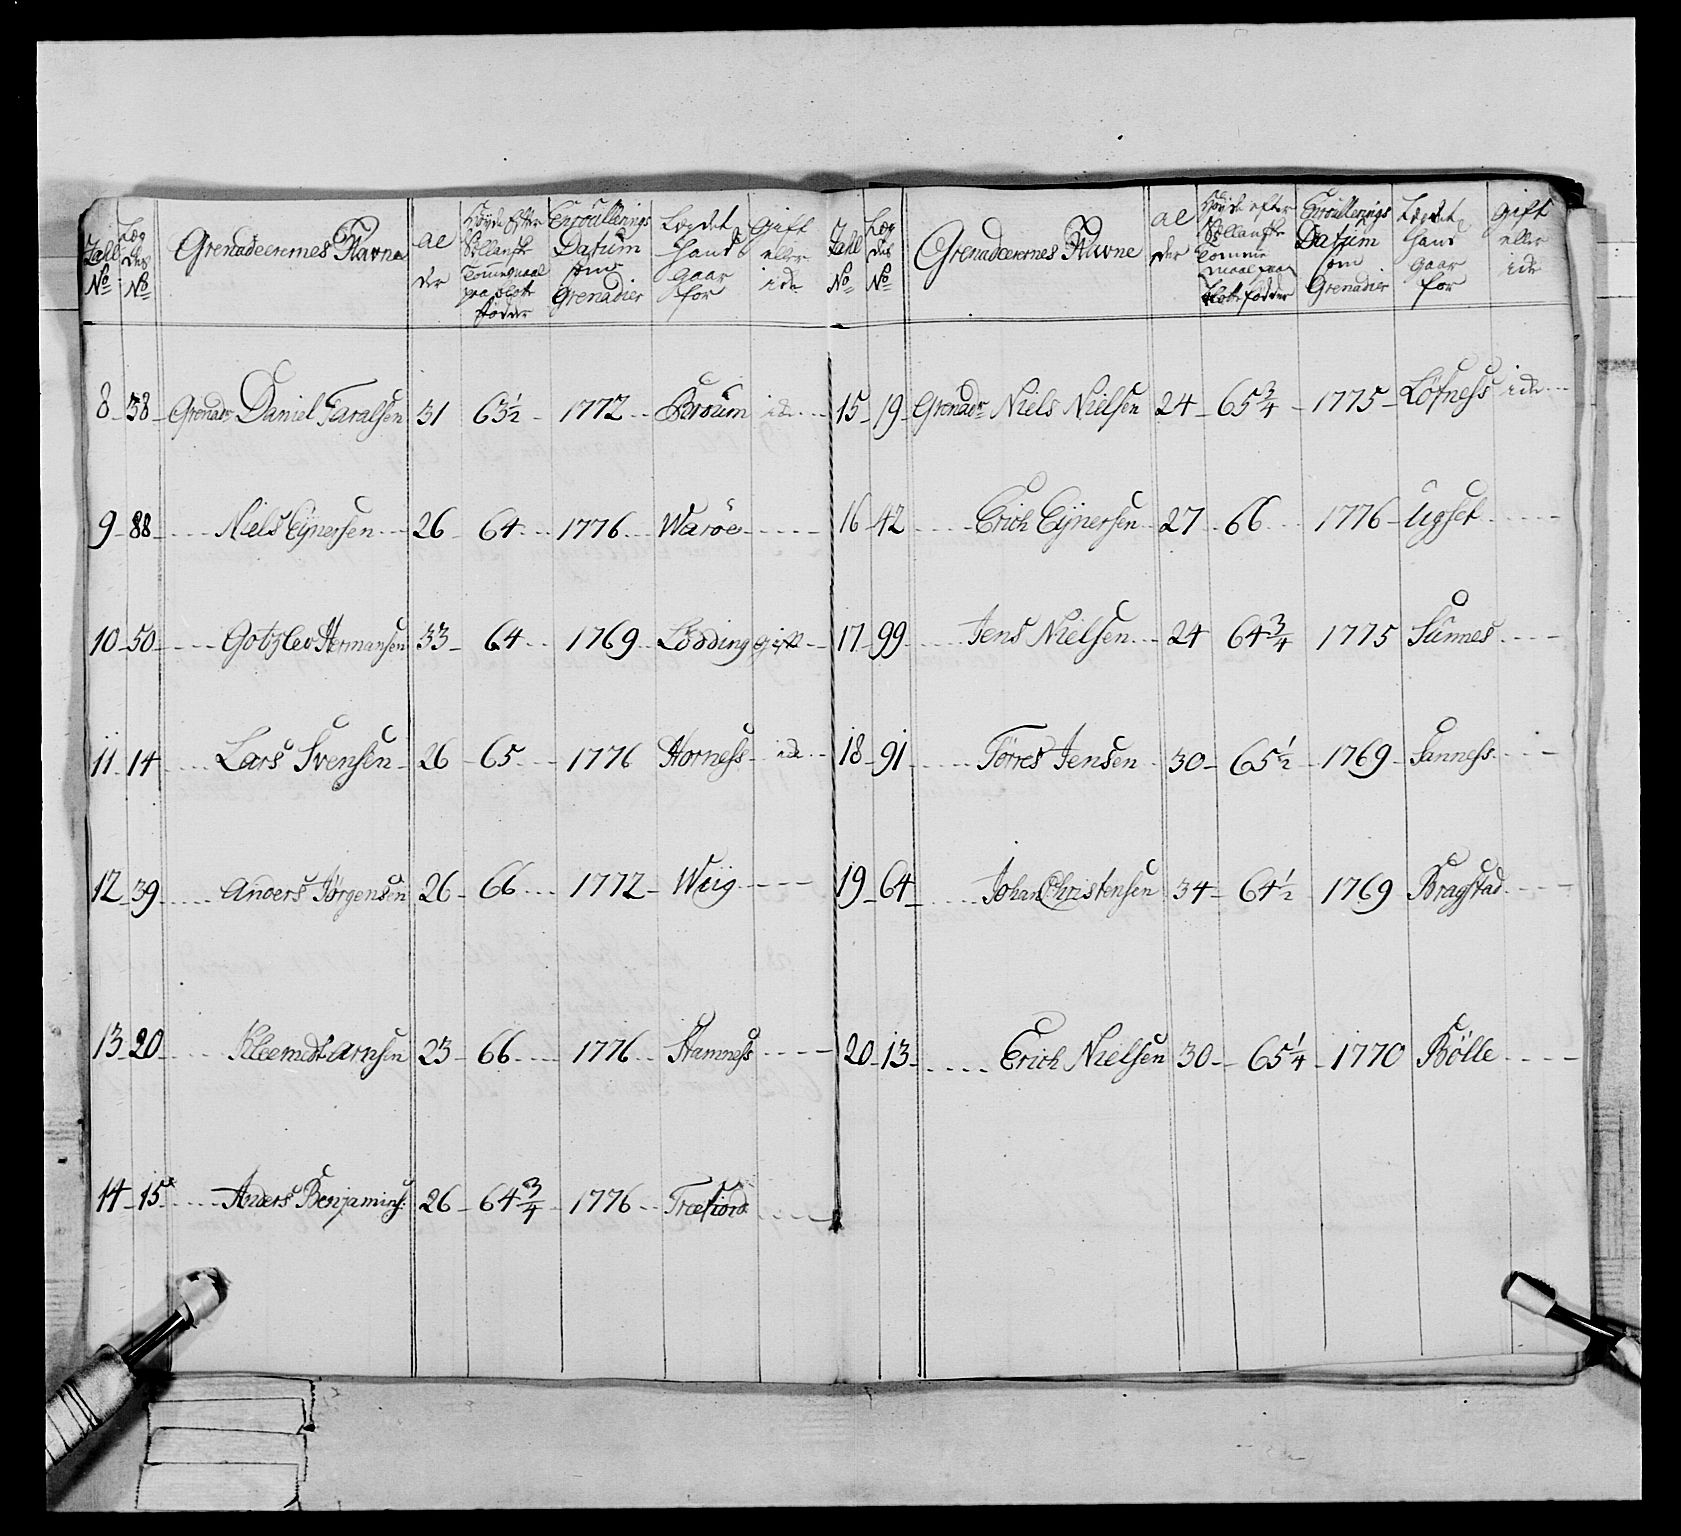 Tall No Læg des No Grenadeerernes Navne al der Høyde efter Sellandsk Tommemaal paa blotte fødder Enroullerings Datum som Grenadier Lægdet hand gaar for Gift eller ide
8 38 Grenadr Daniel Taralsen 31 63½ 1772 Broum ide
9 88 Niels Eÿnersen 26 64 1776 Warøe
10 50 Gotzlev Hermansen 33 64 1769 Lødding gift
11 14 Lars Svensen 26 65 1776 Horness ide
12 39 Anders Jørgensen 26 66 1772 Wiig
13 20 Kleemedt Arnsen 23 66 1776 Stamness
14 15 Anders Benjamins: 26 64¾ 1776 Træfiord
Tall No Læg des No Grenadeerernes Navne al der Høyde efter Sellandske Tomme maal paa blotte fødder Enroullerings Datum som Grenadier Lægdet hand gaar for gift eller ide
15 19 Grenadr Niels Nielsen 24 65¾ 1775 Løfness ide
16 42 Erich Eÿnersen 27 66 1776 Ugset
17 99 Jens Nielsen 24 64¾ 1775 Sunnes
18 91 Törres Jensen 30 65½ 1769 Sanness
19 64 Johan Christensen 34 64½ 1769 Kragstad
20 13 Erich Nielsen 30 65¼ 1770 Bölle